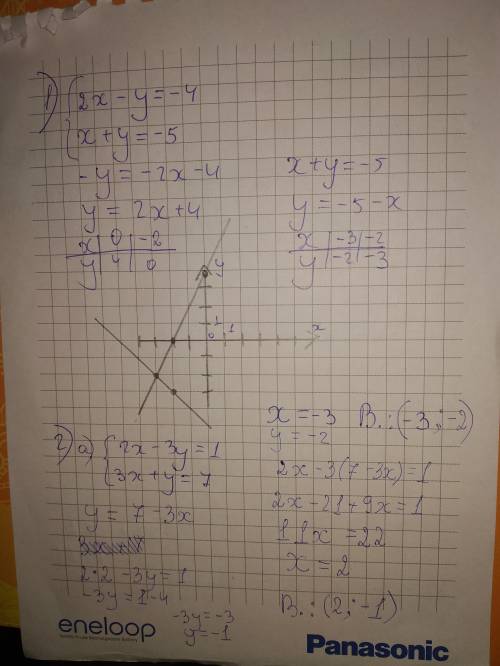 1) { 2x - y = -4
x + y = -5
-y = -2x - 4
y = 2x + 4
x | 0 | -2
y | 4 | 0
x + y = -5
y = -5 - x
x | -3 | -2
y | -2 | -3
y
1
0 1
x
x = -3
y = -2
В.: (-3; -2)
2) а) { 2x - 3y = 1
3x + y = 7
y = 7 - 3x
2·2 - 3y = 1
-3y = 1 - 4
-3y = -3
y = -1
2x - 3(7 - 3x) = 1
2x - 21 + 9x = 1
11x = 22
x = 2
В.: (2; -1)
eneloop
Panasonic